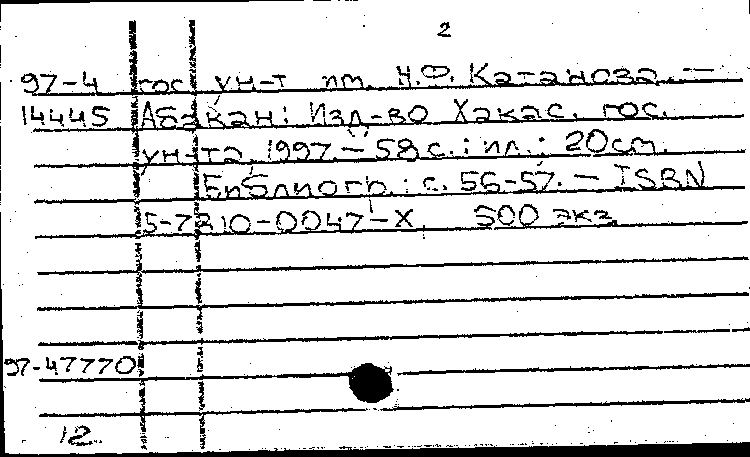 2
97-4 гос. ун-т им. Н.Ф. Катанова. —
14445 Абакан: Изд-во Хакас. гос.
ун-та, 1997. — 58 с.: ил.; 20 см.
Библиогр.: с. 56-57. — ISBN
5-7810-0047-X, 500 экз.
97-47770
12